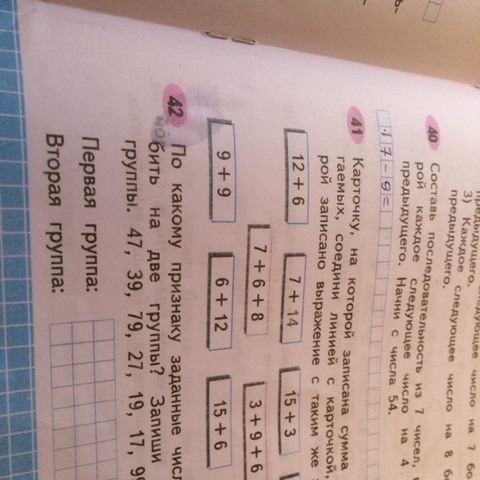 следующее число на 7
предыдущего.
3) Каждое следующее число на 8
предыдущего.
40 Составь последовательность из 7 чисел,
рой каждое следующее число на 4
предыдущего. Начни с числа 54.
17-9=
41 Карточку, на которой записана сумма
гаемых, соедини линией с карточкой,
рой записано выражение с таким же
12 + 6 7 + 14 15 + 3
7 + 6 + 8 3 + 9 + 6
9 + 9 6 + 12 15 + 6
42 По какому признаку заданные
бить на две группы? Запиши
группы. 47, 39, 79, 27, 19, 17,
Первая группа:
Вторая группа: